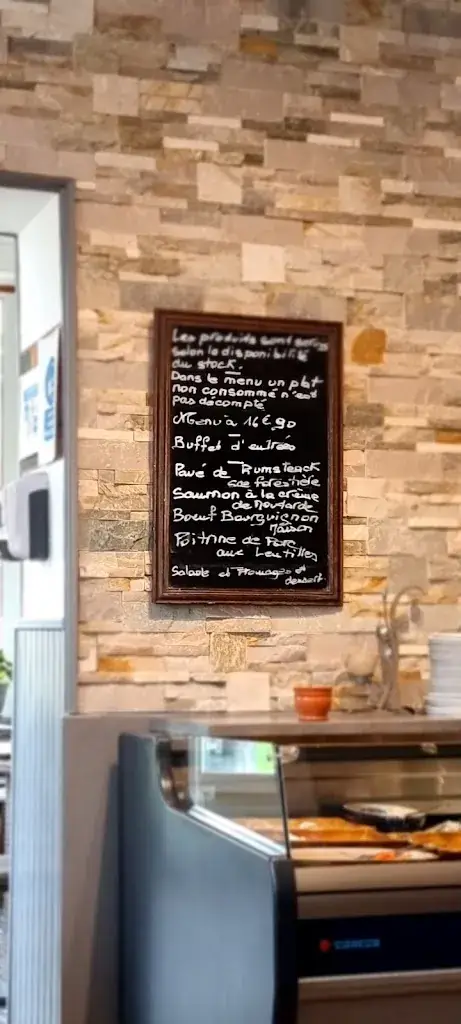 Les produits sont servis
selon la disponibilité
du stock.
Dans le menu un plat
non consommé n'est
pas décompté
Menu à 16€,90
Buffet d'entrées
Pavé de Rumsteack
sce forestière
Saumon à la crème
de Moutarde
Boeuf Bourguignon
Maison
Poitrine de Porc
aux Lentilles
Salade et Fromages et
dessert.